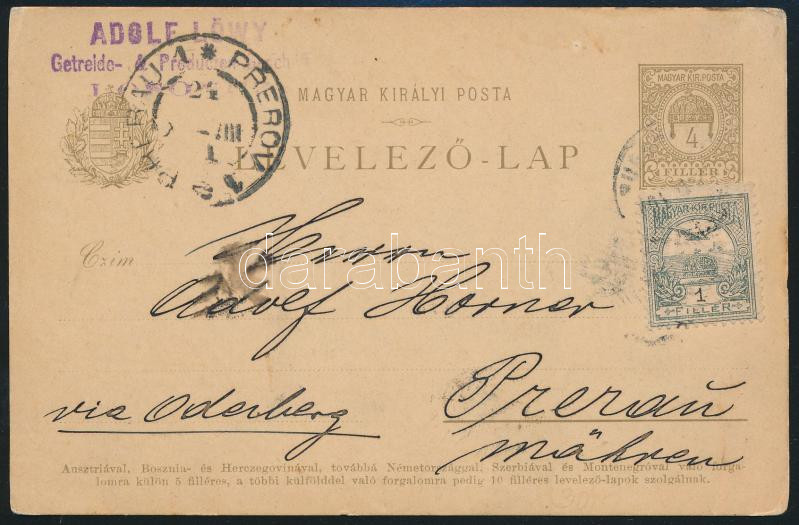 ADOLF LÖWY
Getreide- &
PRERAU * PREROV
MAGYAR KIRÁLYI POSTA
LEVELEZŐ-LAP
MAGY. KIR. POSTA
4.
FILLÉR
MAGYAR·KIR.POSTA
1
FILLÉR
Czim
Herrn
Adolf Horner
via Oderberg
Prerau
Mähren
darabanth
Ausztriával, Bosznia- és Herczegovinával, továbbá Németországgal, Szerbiával és Montenegróval való forga-
lomra külön 5 filléres, a többi külfölddel való forgalomra pedig 10 filléres levelező-lapok szolgálnak.